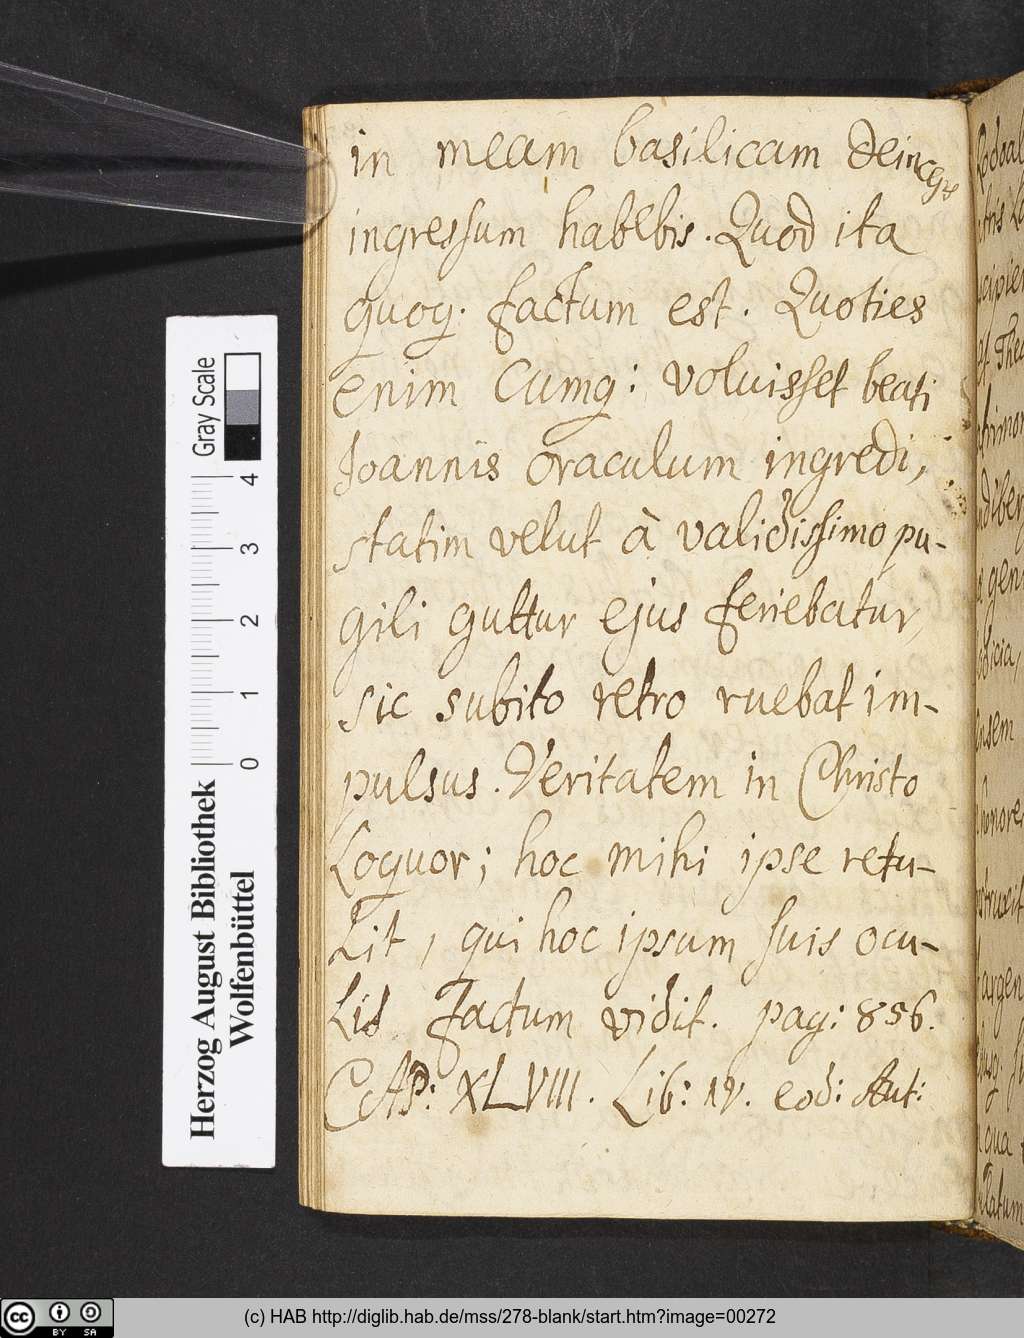 in meam basilicam deinceps
ingressum habebis. Quod ita
quoq. factum est. Quoties
enim cumq: voluisset beati
Joannis oraculum ingredi,
statim velut à validissimo pu-
gili guttur ejus feriebatur,
sic subito retro ruebat im-
pulsus. Veritatem in Christo
Loquor; hoc mihi ipse retu-
Lit, qui hoc ipsum suis ocu-
Lis factum vidit. pag: 856.
CAP: XLVIII. Lib: IV. eod: Aut:
Herzog August Bibliothek
Wolfenbüttel
Gray Scale
0 1 2 3 4
(c) HAB http://diglib.hab.de/mss/278-blank/start.htm?image=00272
cc BY SA